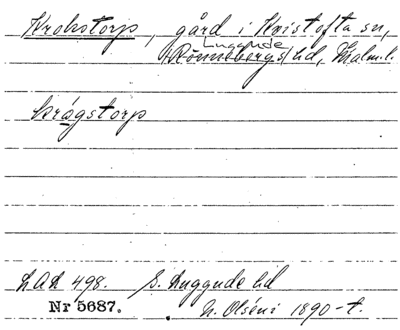 Krokstorp, gård i Kvistofta sn,
Luggude
Rönnebergs hd, Malm.l.
krågstorp
LAL 498. S. Luggude hd
Nr 5687. N. Olséni 1890-t.